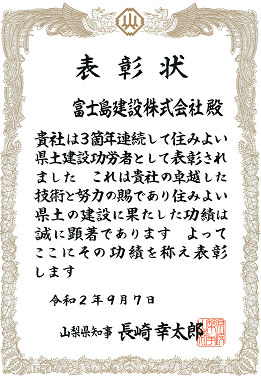 表彰状
富士島建設株式会社 殿
貴社は３箇年連続して住みよい
県土建設功労者として表彰され
ました　これは貴社の卓越した
技術と努力の賜であり住みよい
県土の建設に果たした功績は
誠に顕著であります　よって
ここにその功績を称え表彰
します
令和２年９月７日
山梨県知事 長崎幸太郎